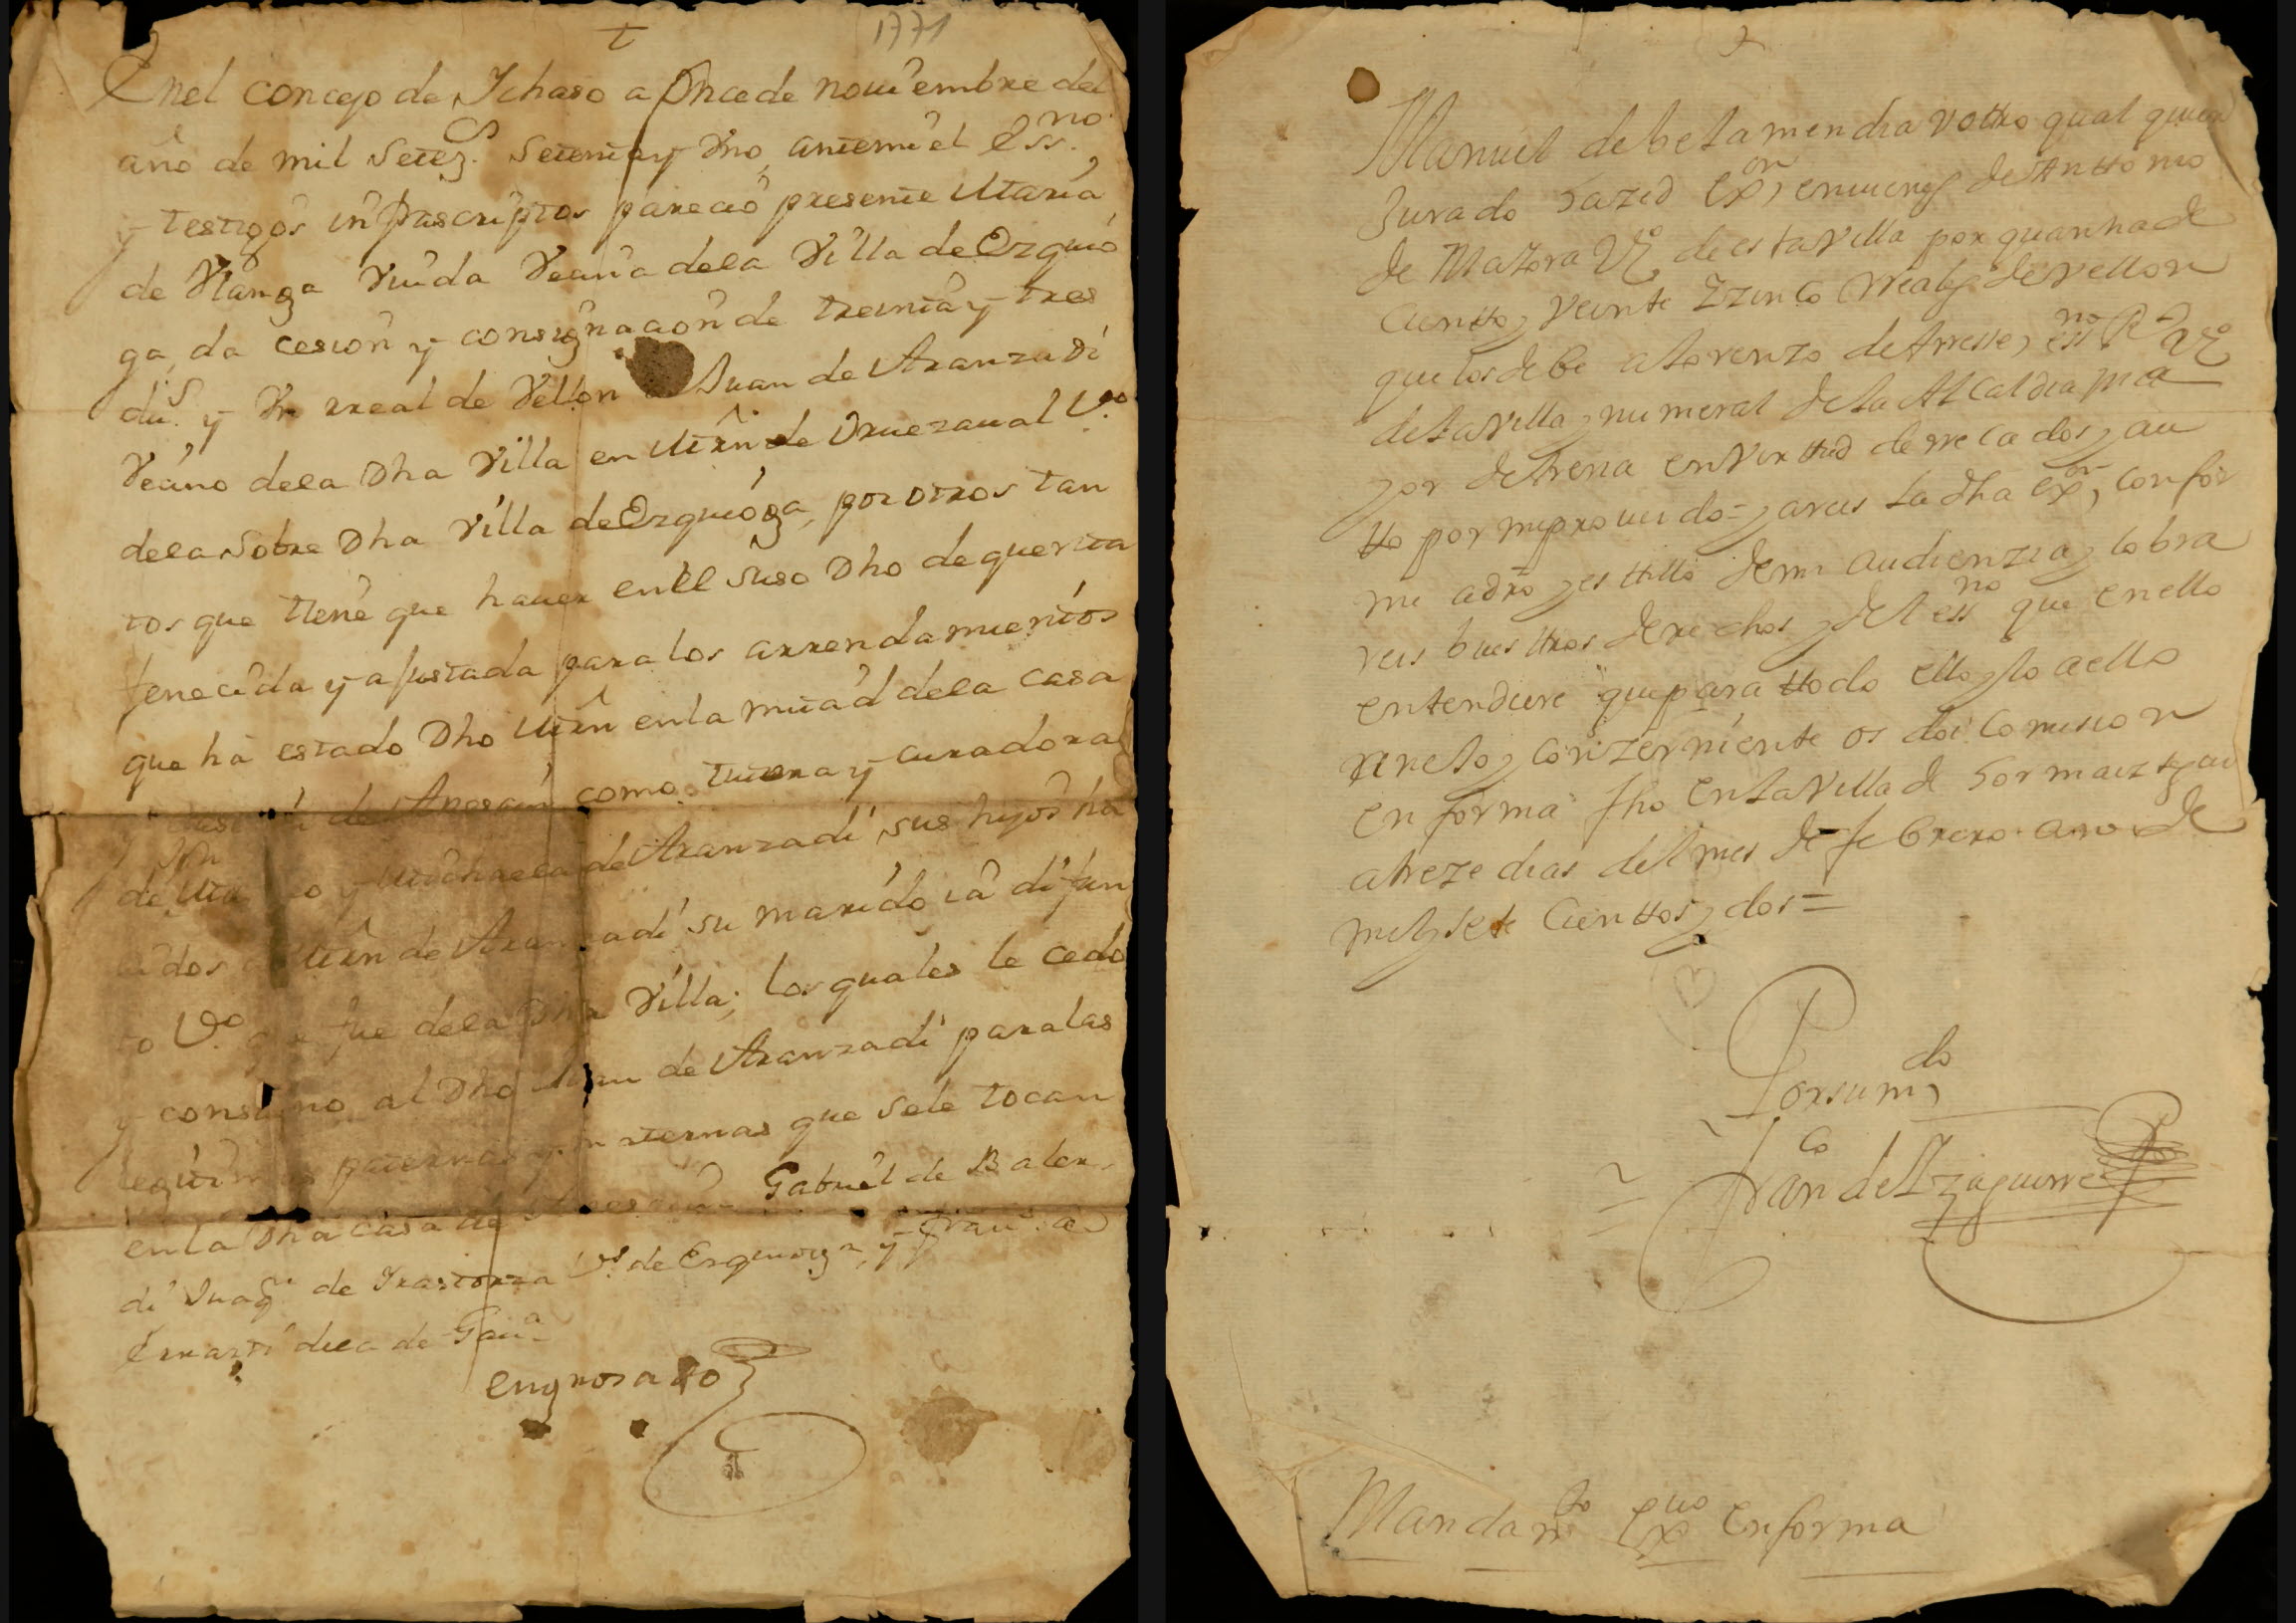 1771
En el concejo de Ichaso a Once de nouiembre del
año de mil Setez.s Setenta y Vno, antemi el Ess.no
y testigos infrascriptos parecio presente Maria
de Vianga Viuda Vecina dela Villa de Ezquio
ga, da cesion y consignacion de treinta y tres
du.s y Vn rreal de Vellon a Juan de Aranzadi
Vecino dela Dha Villa en Mrn de Vruezaual V.no
dela Sobre Dha Villa de Ezquioga, por otros tan
tos que tiene que hauer en el Suso Dho de quenta
fenecida y ajustada para los arrendamientos
que ha estado Dho Mrn en la mitad dela casa
como tutora y curadora
y Michaela de Aranzadi sus hijos ha
uidos Mrn de Aranzadi su marido ia difun
to V.o que fue dela Dha Villa; los quales le cedo
y consigno al Dho Juan de Aranzadi para las
legitimas paternas y maternas que se le tocan
en la Dha casa de Gabriel de Baler
di Juaq.n de Irastorza V.s de Ezquioga, y Fran.co de
de Gau.a
engrosado
Manuel de beLamendia v otro qual quier
Jurado hazed exon, en vienes de Anttonio
de MaZora Vo de esta Villa por quantia de
Cientto y Veinte Zzinco rreales de vellon
que los debe a Lorenzo de Arresse, essno Rl Vo
de La Villa y numeral de La ALcaldia ma
yor de Arena en Virttud de rrecados y au
tto por mi proueido = y areis La dha exon, confor
me a dro y estillo de mi audienzia y cobra
reis buesttros derechos y del essno que en ello
entendiere que para ttodo ello y lo a ello
anexo y conzerniente os doi Comission
en forma fho en La Villa de Gormaiztegui
a treze dias del mes de febrero año de
mil y sete Cienttos y dos =
Por su mdo
Franco de Yzaguirre
Mandamto exuo en forma